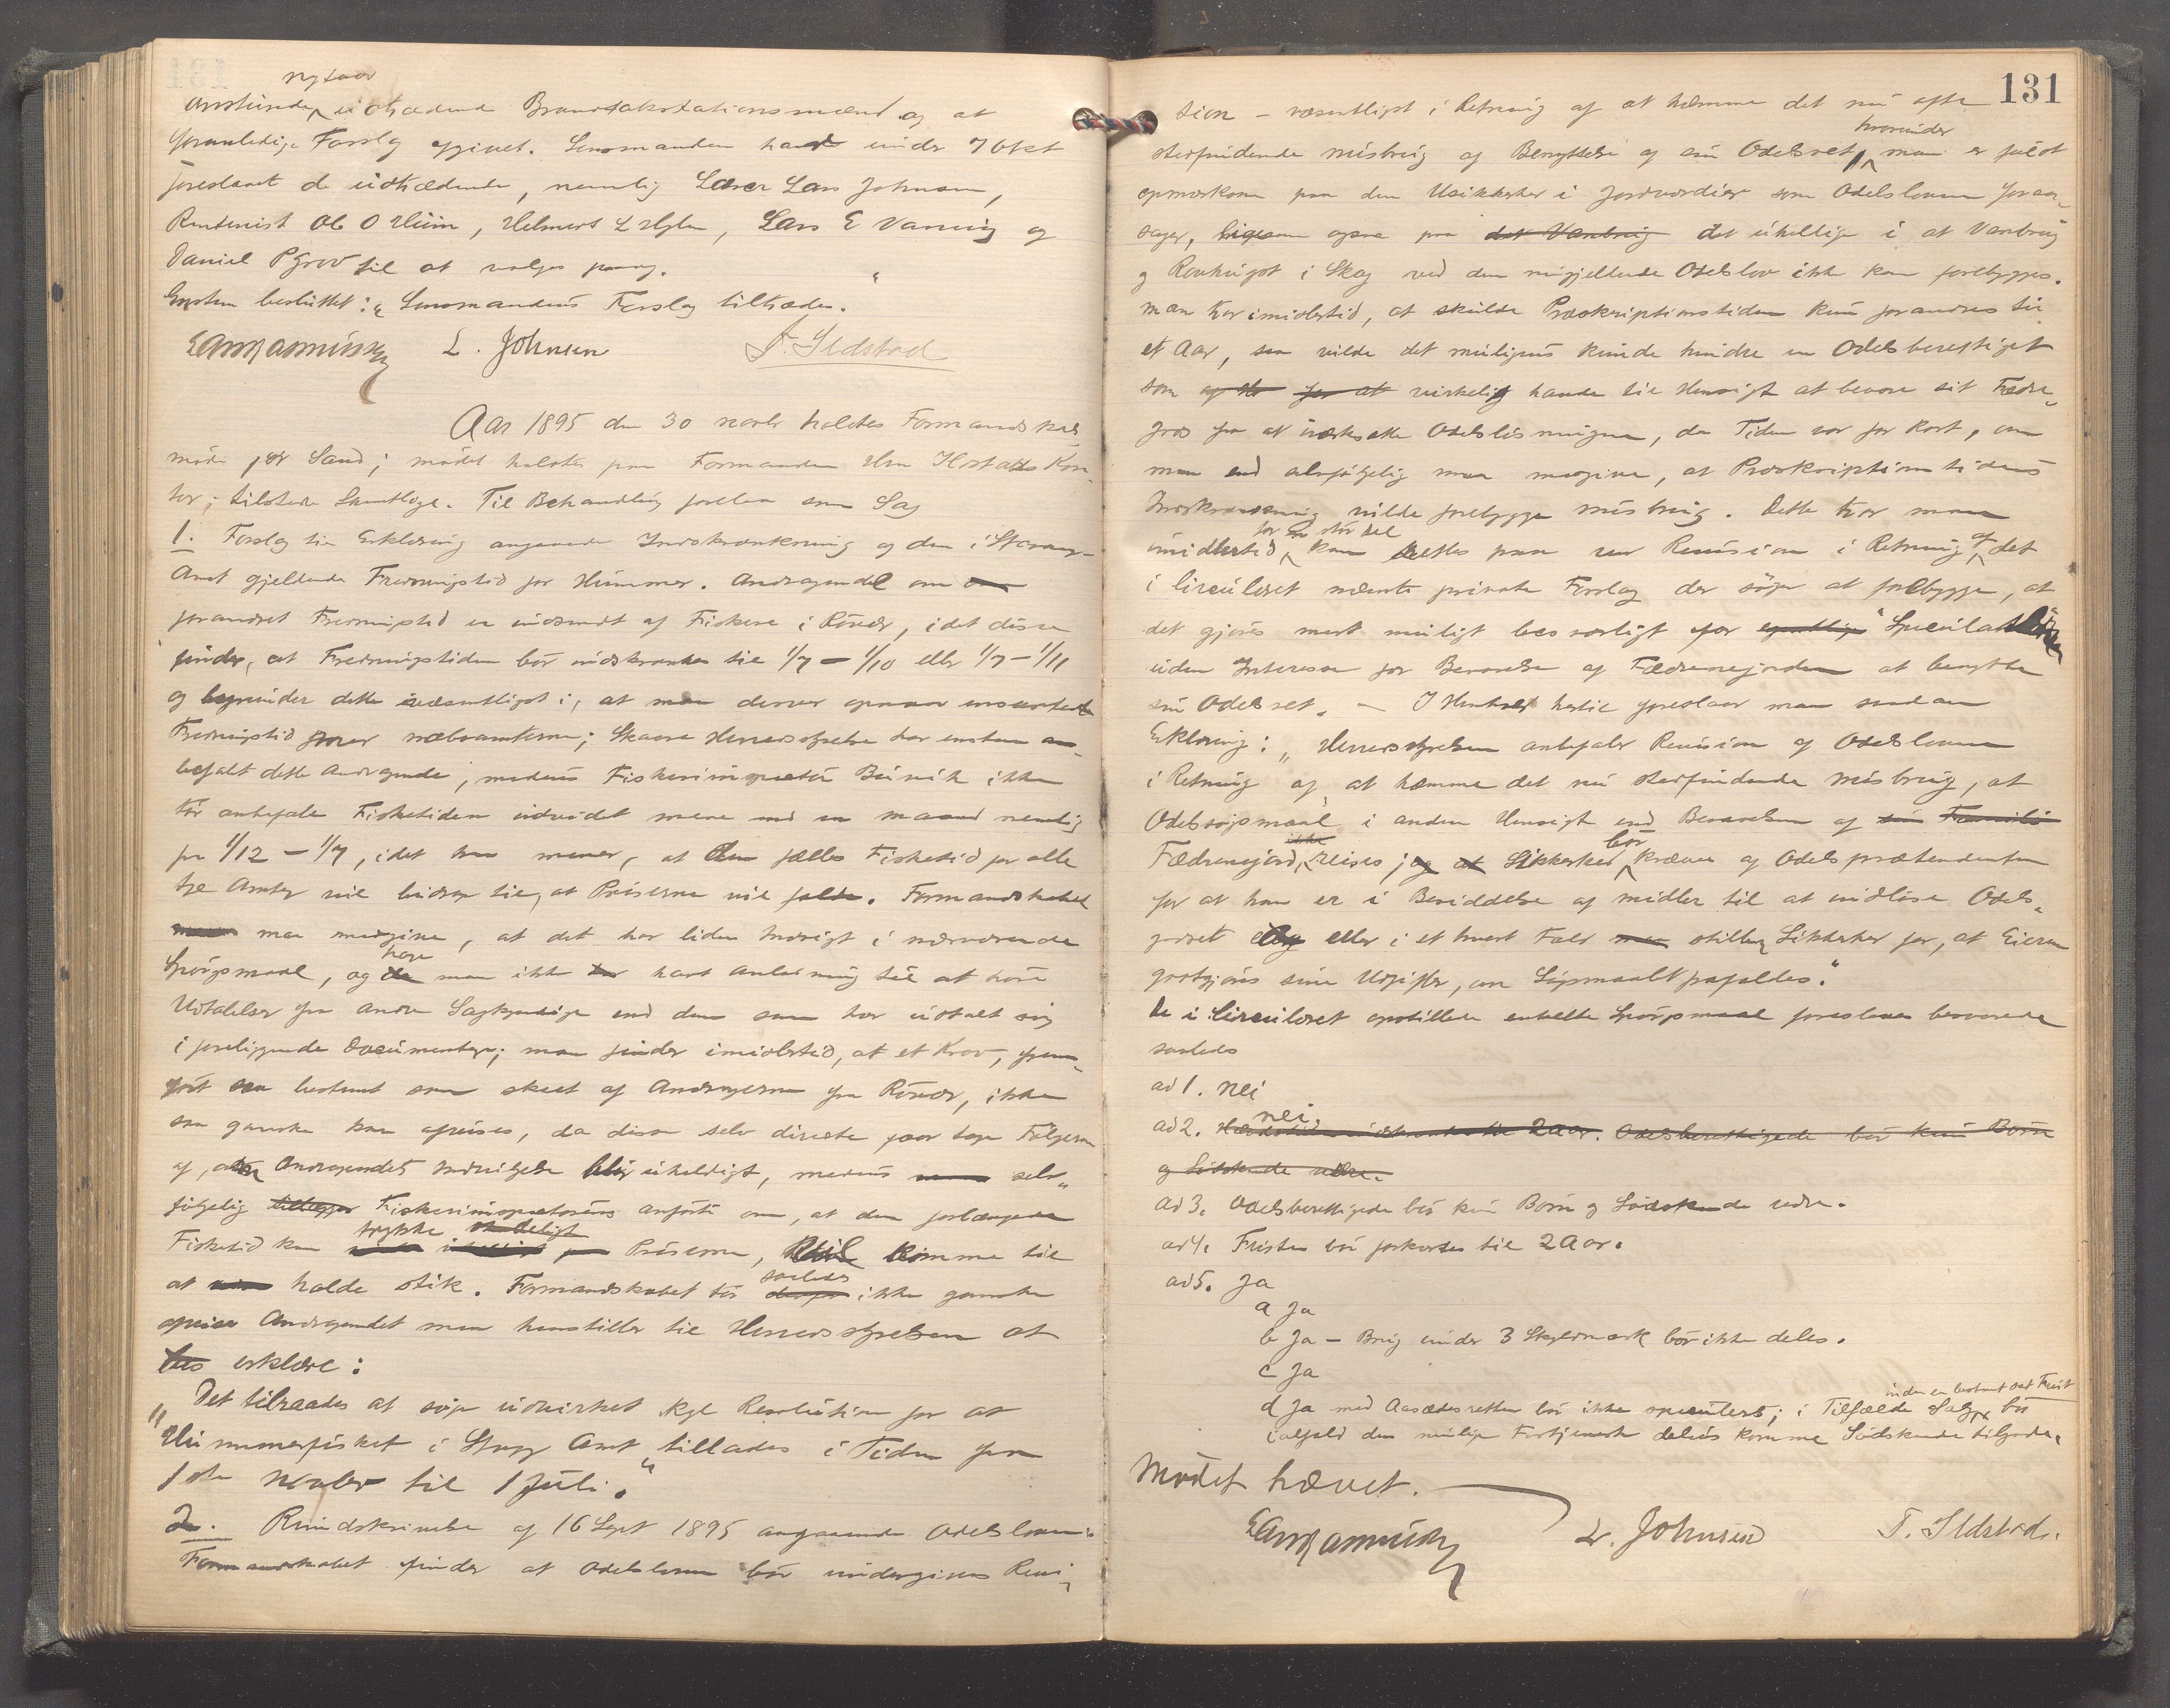 nytaar
anstundende udtrædende Brandtakstationsmænd og at
foranledige Forslag afgivet. Lensmanden havde under 7 Okt
foreslaaet de udtrædende, nemlig Lærer Lars Johnsen,
Rentenist Ole O Hiim, Helmert L, Lars E Vaaning og
Daniel P Grov til at vælges paany.
Enstem besluttet: "Lensmandens Forslag tiltrædes."
E Asmussen L. Johnsen T. Ildstad
Aar 1895 den 30 novbr holdtes Formandskabs-
møde for Sand; mødet holdtes paa Formanden Hrn Kon-
tor; tilstede Samtlige. Til Behandling forelaa som Sag
1. Forslag til Erklæring angaaende Indskrænkning af den i Stavanger
Amt gjeldende Fredningstid for Hummer. Andragendet om
forandret Fredningstid er indsendt af Fiskere i Røvær, idet disse
finder, at Fredningstiden bør indskrænkes til 1/7 – 1/10 eller 1/7 – 1/11
og begrunder dette væsentligst i, at man derved opnaar ensartet
Fredningstid med naboamterne; Skaare Herredsstyrelse har enstem an-
befalt dette Andragende, medens Fiskeriinspektør Buvik ikke
tør anbefale Fisketiden udvidet mere end en maaned nemlig
fra 1/12 – 1/7, idet han mener, at den fælles Fisketid for alle
tre Amter vil bidrage til, at Priserne vil falde. Formandskabet
maa medgive, at det har liden Indsigt i nærværende
Spørgsmaal, og har man ikke havt Anledning til at høre
Udtalelser fra andre Sagkyndige end dem som har udtalt sig
i foreliggende Documenter; man finder imidlertid, at et Krav, frem-
ført saa bestemt som skeet af Andragerne fra Røvær, ikke
saa ganske kan afvises, da disse selv directe faar tage Følgerne
af, om Andragendets Indvilgelse blir uheldigt, medens selv-
følgelig Fiskeriinspektørens anførte om, at den forlængede
Fisketid kan trykke Priserne, vil komme til
at holde stik. Formandskabet tør saaledes ikke ganske
afvise Andragendet men henstiller til Herredsstyrelsen at
erklære:
"Det tilraades at søge udvirket kgl Resolution for at
Hummerfisket i Stvgr Amt tillades i Tiden fra
1ste novbr til 1 Juli."
2. Rundskrivelse af 16 Sept 1895 angaaende Odelsloven:
Formandskabet finder at Odelsloven bør undergives Revi-
131
sion – væsentligst i Retning af at hæmme det nu ofte
stedfindende misbrug af Benyttelse af sin Odelsret, hvorunder man er fuldt
opmærksom paa den Usikkerhed i Jordværdier som Odelsloven foraar-
sager, ligesom ogsaa paa det Vanbrug det uheldige i at Vanbrug
og Rovhugst i Skog ved den nugjeldende Odelslov ikke kan forebygges.
Man tror imidlertid, at skulde Præskriptionstiden kun forandres til
et Aar, saa vilde det muligens kunde hindre en Odelsberettiget
som for at virkelig havde til Hensigt at bevare sit Fædre-
gods fra at iværksætte Odelsløsningen, da Tiden var for kort, om
man end selvfølgelig maa medgive, at Præskriptionstidens
Indskrænkning vilde forebygge misbrug. Dette tror man
imidlertid for en stor del kan rettes paa ved Revision i Retning af det
i Circulæret nævnte private Forslag der søger at forebygge, at
det gjøres mest muligt besværligt for egentlige "Speculatører"
uden Interesse for Bevarelse af Fædrenejorden at benytte
sin Odelsret. – I Henhold hertil foreslaaes man saadan
Erklæring: "Herredsstyrelsen anbefaler Revision af Odelsloven
i Retning af at hæmme det nu stedfindende Misbrug, at
Odelssøgsmaal i anden Hensigt end Bevarelsen af sin Familie
Fædrenejord, ikke reises; og at Sikkerhed bør kræves af Odelsprætendenten
for at han er i Besiddelse af midler til at indløse Odels-
godset eller i et hvert Fald stiller Sikkerhed for, at Eieren
godtgjøres sine Udgifter, om Søgsmaalet frafaldes."
De i Circulæret opstillede enkelte Spørgsmaal foreslaaes besvarede
saaledes
ad 1. nei
ad 2. nei Hævdstid indskrænkes til 2 Aar. Odelsberettigede bør kun Børn
og Sødskende være.
ad 3. Odelsberettigede bør kun Børn og Sødskende være.
ad 4. Fristen bør forkortes til 2 Aar.
ad 5. Ja
a Ja
b Ja – Brug under 3 Skyldmark bør ikke deles.
c Ja
d Ja med Aasædesretten bør ikke speculeres; i Tilfælde Salg inden en bestemt sat Frist bør
ialfald den mulige Fortjeneste deles komme Sødskende tilgode.
Mødet hævet.
E Asmussen L. Johnsen T. Ildstad.